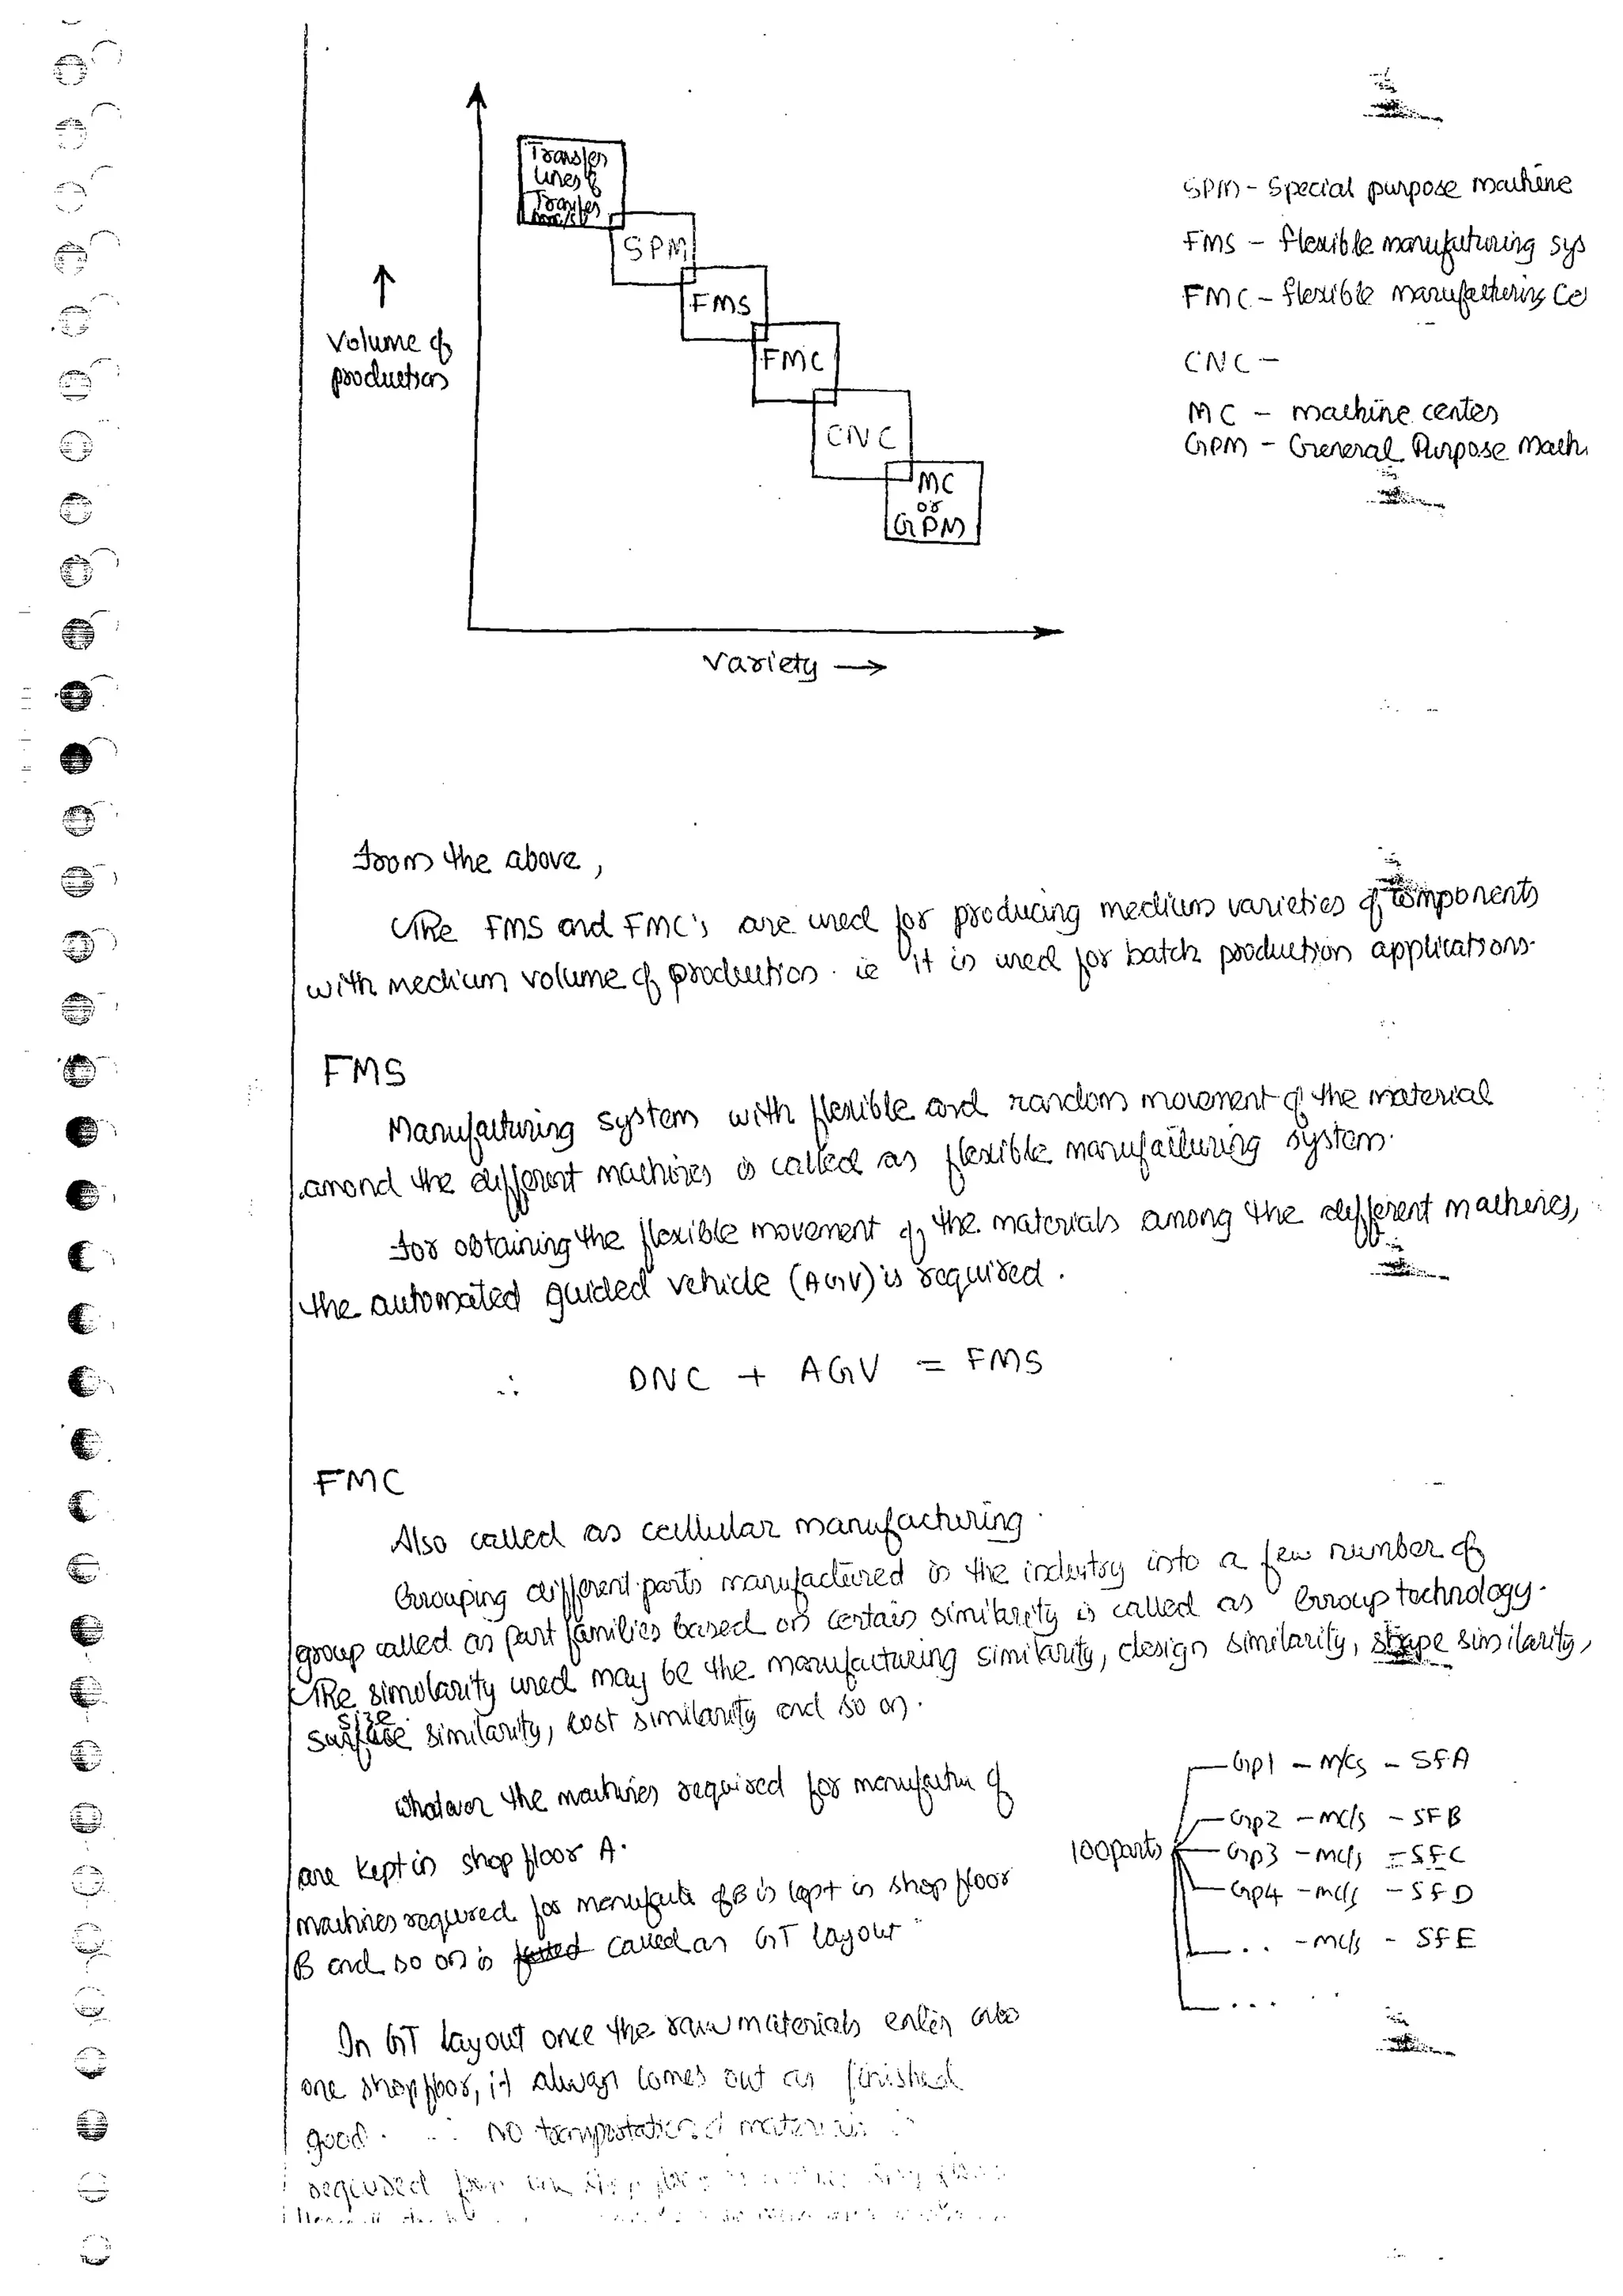 Transfer
lines &
Transfer
m/c/s
SPM
FMS
FMC
CNC
MC
or
GPM
↑
Volume of
production
Variety →
SPM - Special purpose machine
FMS - flexible manufuturing sys
FMC - flexible manufacturing Ce
CNC -
MC - machine center
GPM - General Purpose Mach
from the above,
The FMS and FMC's are used for producing medium varieties of components
with medium volume of production. ie it is used for batch production applications.
FMS
Manufacturing system with flexible and random movement of the material
amond the different machines is called as flexible manufacturing system.
for obtaining the flexible movement of the materials among the different machines,
the automated guided vehicle (AGV) is required.
∴ DNC + AGV = FMS
FMC
Also called as cellular manufacturing.
Grouping different parts manufactured in the industry into a few number of
group called as part families based on certain similarity is called as Group technology.
The simolarity used may be the manufacturing similarity, design similarity, shape similarity,
size
surface similarity, cost similarity and so on.
Whatever the machines required for manufactur of
are kept in shop floor A.
machines required for manufacte of B is kept in shop floor
B and so on is called as GT layout
In GT layout once the raw materials enter into
one shop floor, it always comes out as finished
good. ∴ NO transportation of materials is
required from one shop floor
100 parts
Gp1 - M/cs - SFA
Gp2 - mc/s - SFB
Gp3 - mc/s - SFC
Gp4 - mc/s - SFD
.. - mc/s - SFE
... ..